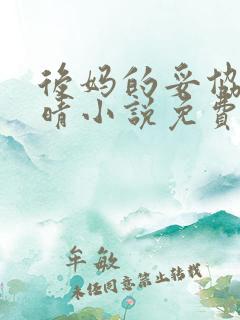 后妈的妥协
晴小说免费
牟敏
未经同意禁止转载